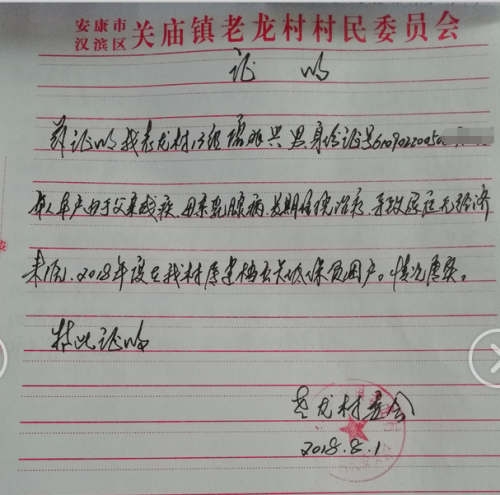 安康市
汉滨区 关庙镇老龙村村民委员会
证 明
兹证明我老龙村13组 振兴 男身份证号6109022005
本人单户由于父亲残疾,母亲乳腺病,长期住院治疗,导致家庭无经济
来源,2018年度在我村属建档立卡低保贫困户。情况属实。
特此证明
老龙村委会
2018.8.1